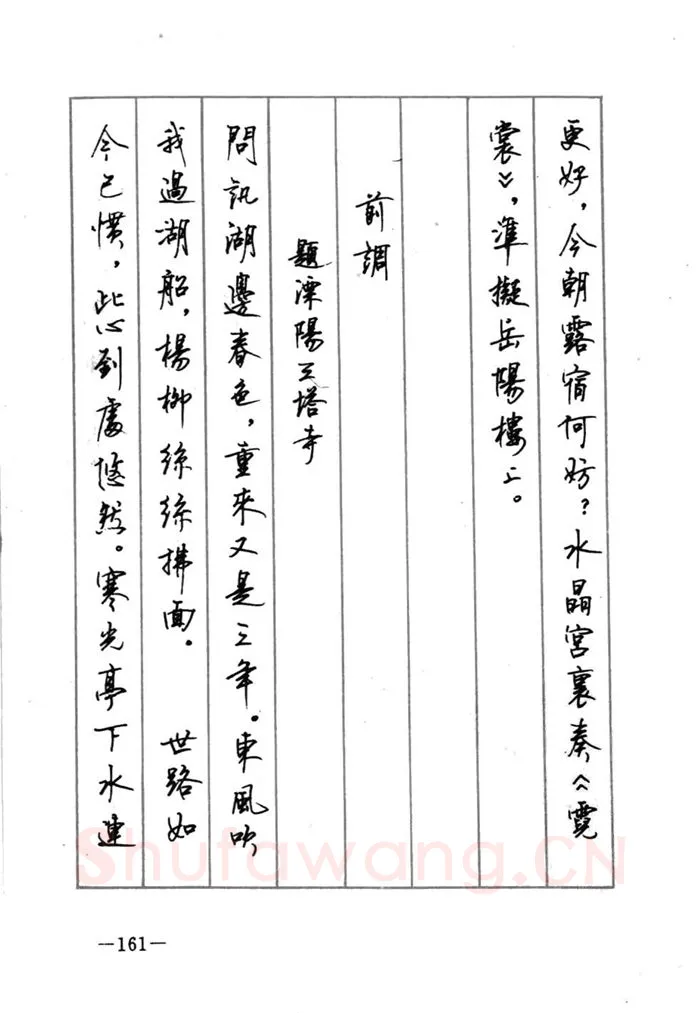 更好，今朝露宿何妨？水晶宮裏奏《霓
裳》，準擬岳陽樓上。
前調
題溧陽三塔寺
問訊湖邊春色，重來又是三年。東風吹
我過湖船，楊柳絲絲拂面。 世路如
今已慣，此心到處悠然。寒光亭下水連
Shufawang.CN
—161—